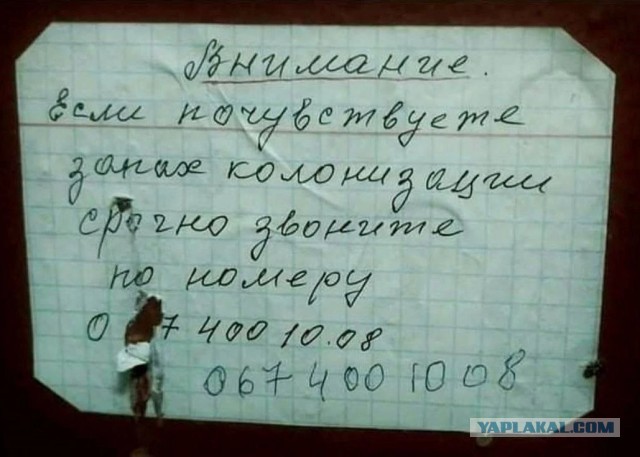 Внимание.
Если почувствуете
запах колонизации
срочно звоните
по номеру
0 7 400 10.08
067 400 10 08
YAPLAKAL.COM